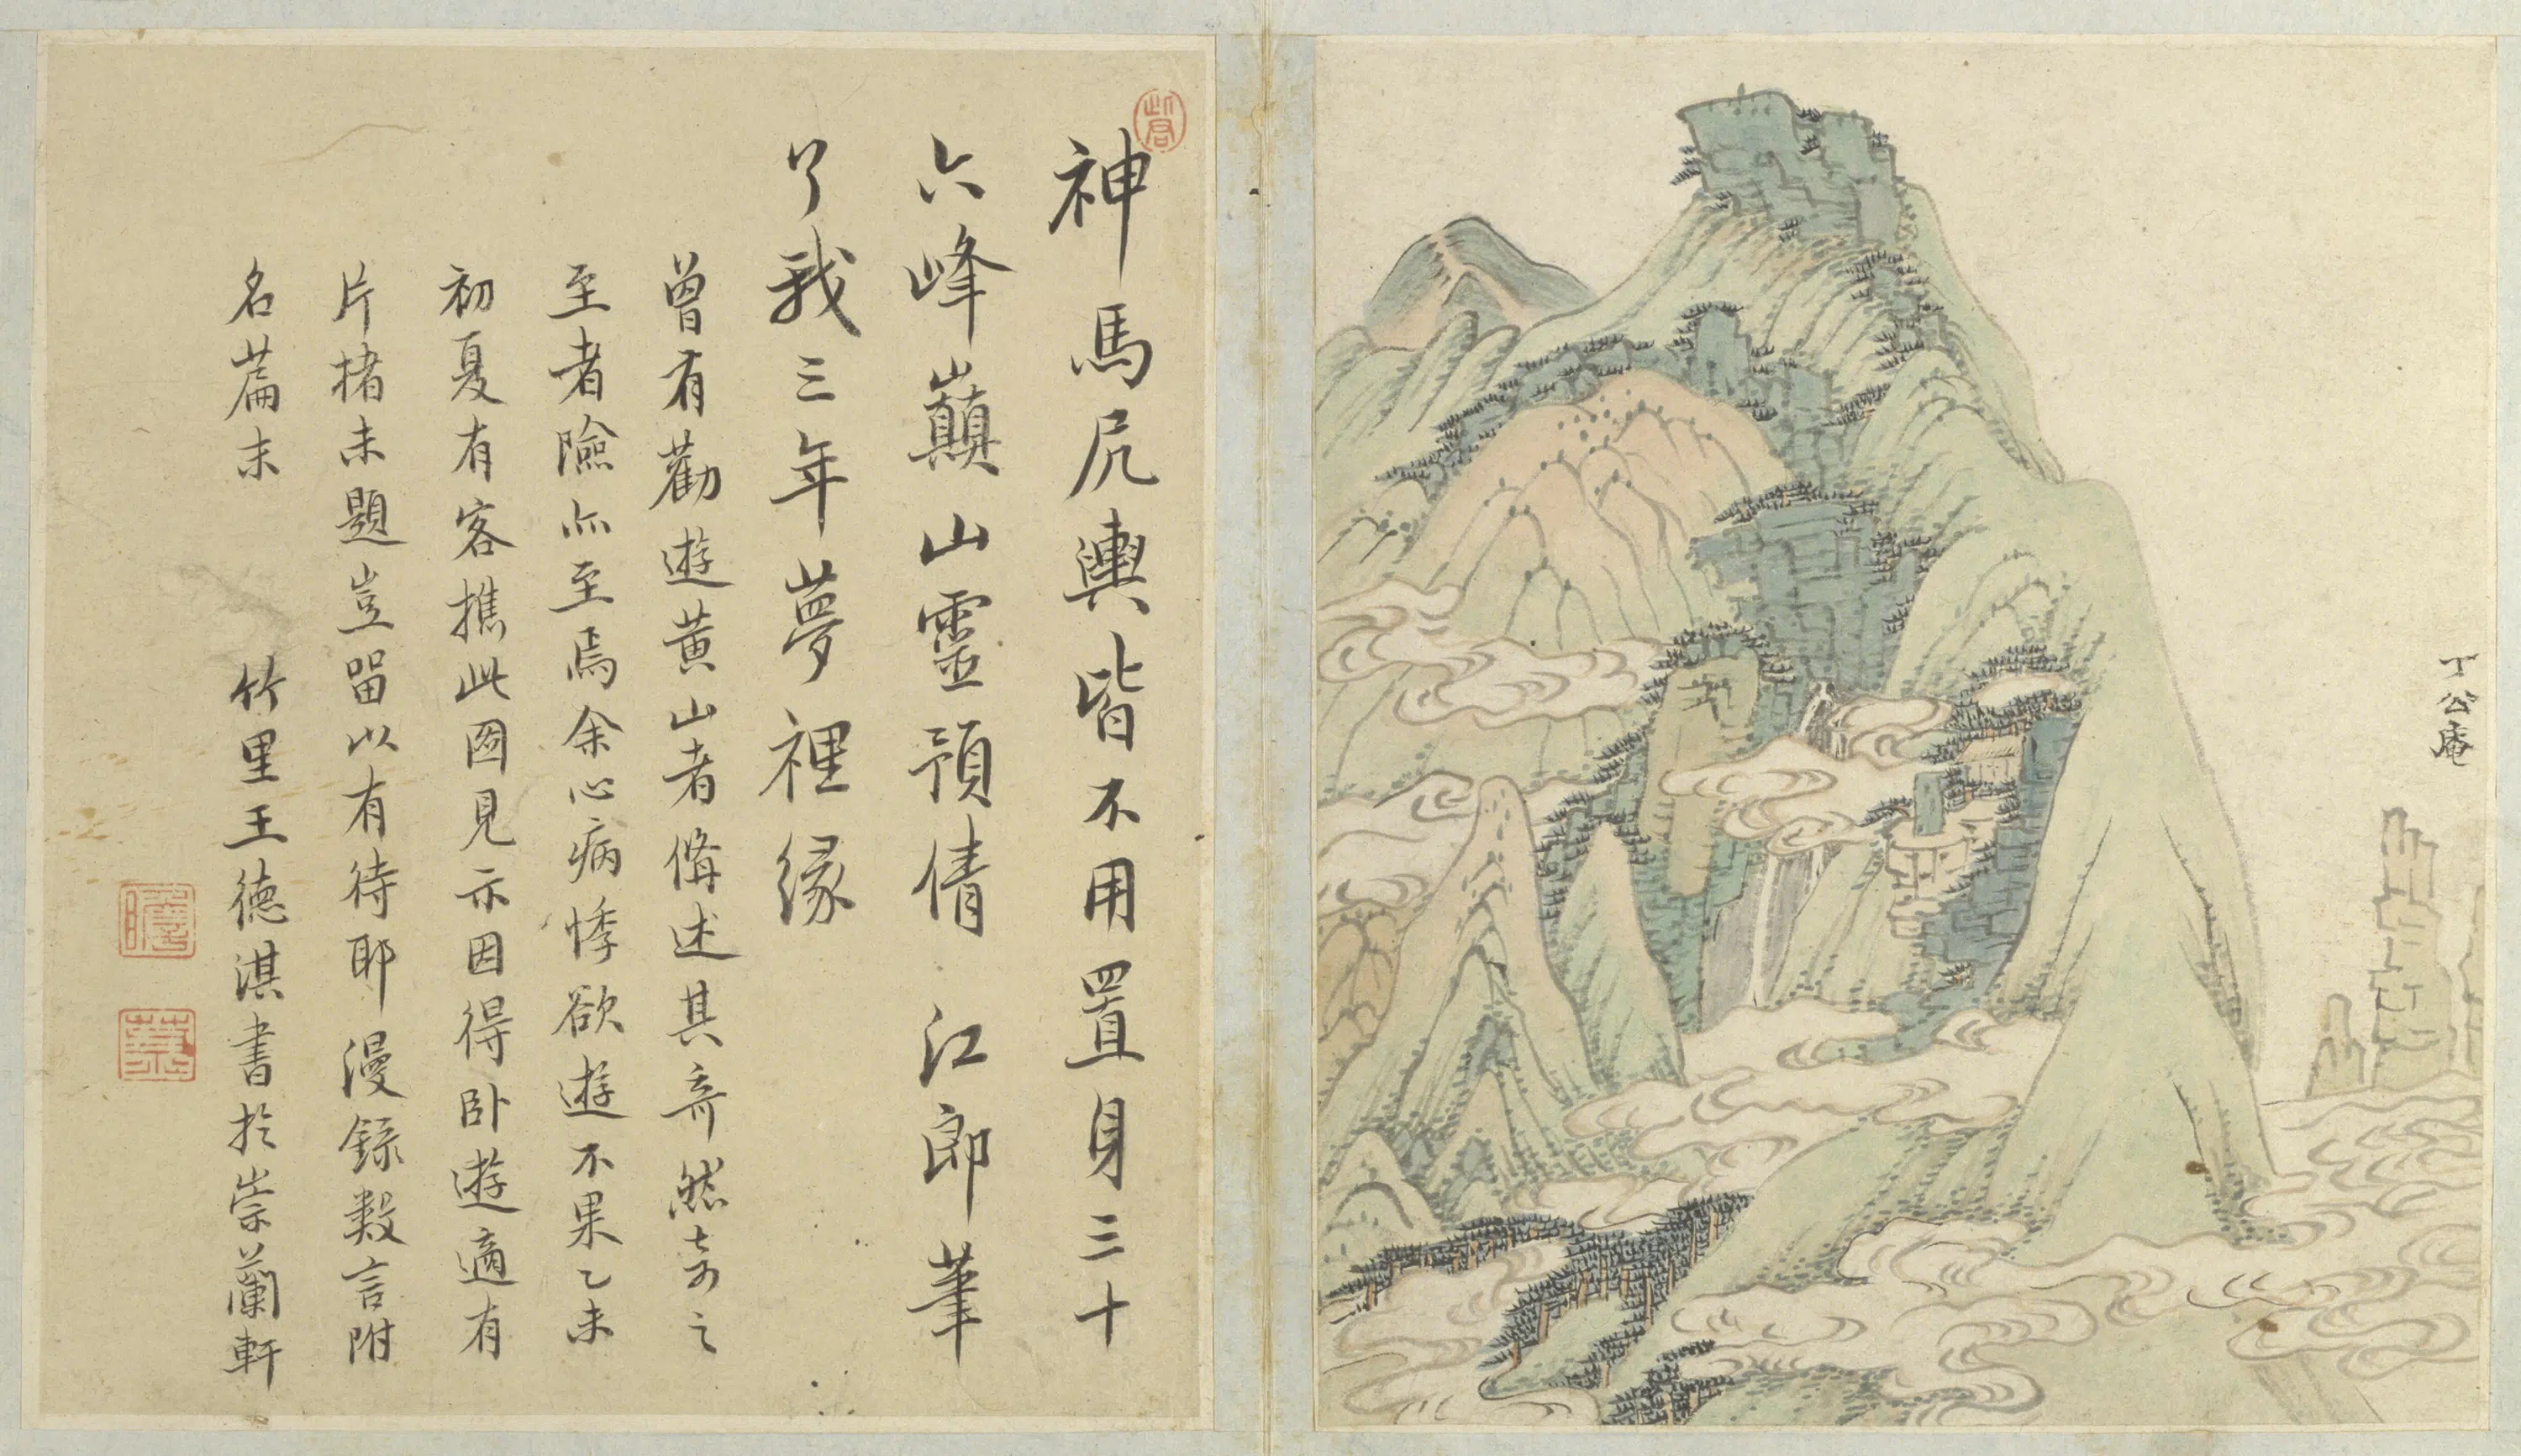 丁公庵
神馬尻輿皆不用置身三十
六峰巔山靈預倩江郎筆
了我三年夢裡緣
曾有勸遊黃山者備述其奇然奇之
至者險亦至焉余心病悸欲遊不果乙未
初夏有客攜此圖見示因得臥遊適有
片楮未題豈留以有待耶漫錄數言附
名篇末
竹里王德淇書於崇蘭軒